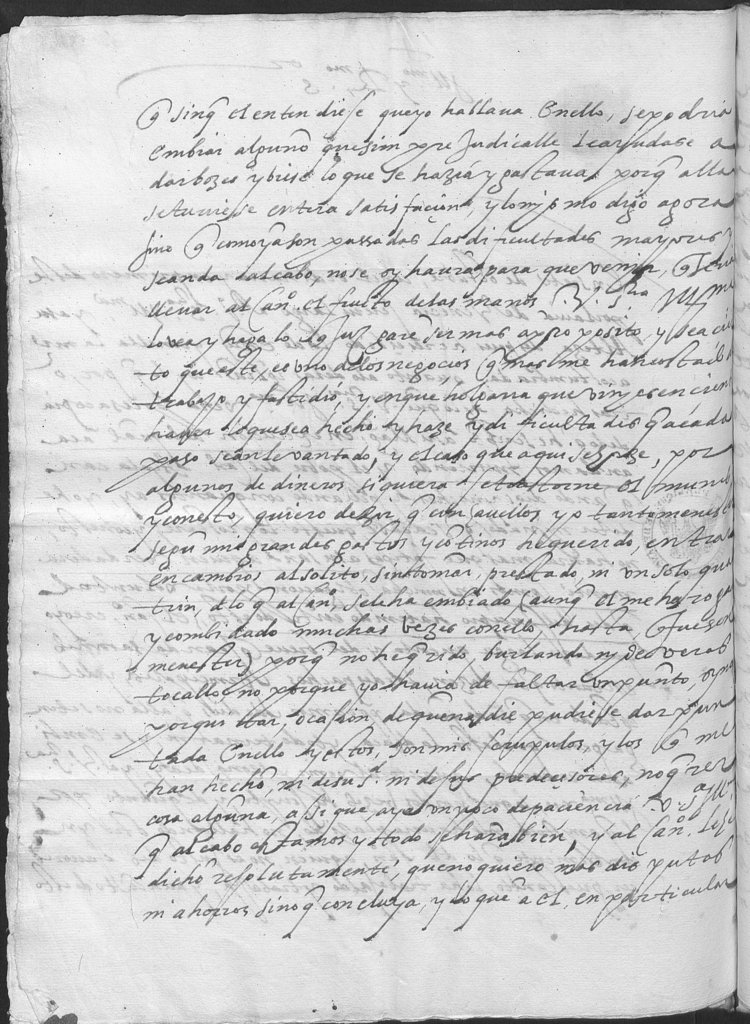 q̃ sinq̃ el entendiesse que yo hablaua Enello, se podria
Embiar alguno que sim
dar bozes y viese lo que se hazia y gastaua, porq̃ alla
setuuiesse entera satisfacion, y lo mismo digo agora
sino q̃ como ya son passadas las dificultades mayores
seanda al cabo, no se sy haura para que venir, q̃
lleuar al Can.º el fructo de las manos V. S.ria Ill.me
lo vea y haga lo q̃ juzgare ser mas a proposito, y sea cier
to que este, es vno de los negocios q̃ mas me han costado
trabajo y fastidio, y en que holgaria que viniessen
hauer lo que sea hecho y haze y dificultades q̃ a cada
paso sean leuantado, y el caso que aqui se haze, por
algunos de dineros siquiera se trastorne el mundo
y con esto, quiero dezir q̃ con auellos yo tanto menester
segun mis grandes gastos y cõtinos he querido, entrar
en cambios al solito, sin tomar, prestado, ni vn solo qua
trin, dlo q̃ al Can.º sele ha embiado (aunq̃ el me ha roga
y combidado muchas vezes con ello hasta, q̃
menester) porq̃ no he q̃rido, burlando ny de veras
tocallo, no porque yo hauia de faltar vn punto, syno
por quitar ocasion, de que nadie pudiesse dar pun
tada Enello y estos, son mis scrupulos, y los q̃ me
han hecho, ni de su S.ª ni de sus predecesores, no q̃rer
cosa alguna, assi que, aya vn poco de paciencia V. S.ª Ill.ma
q̃ al cabo estamos y todo se hara bien, y al Can.º le he
dicho resolutamente, que no quiero mas disputas
ni ahorros sino q̃ concluya, y lo que a el, en particular